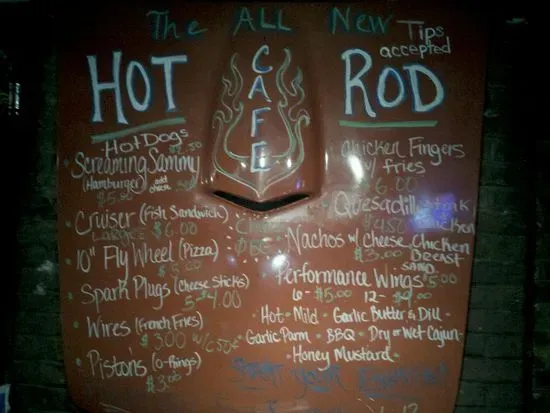 The ALL New
Tips
accepted
HOT
CAFE
ROD
Hot Dogs
Screaming Sammy
(Hamburger)
Cruiser (Fish Sandwich)
$6.00
10" Fly Wheel (Pizza)
Spark Plugs (Cheese Sticks)
5- $4.00
Wires (French Fries)
$3.00
Pistons (O-Rings)
Chicken Fingers
w/ fries
$6.00
Quesadilla
Nachos w/ Cheese
$3.00
Chicken
Breast
Performance Wings
$5.00
6- $5.00 12- $9.00
Hot • Mild • Garlic Butter & Dill •
Garlic Parm • BBQ • Dry or Wet Cajun •
Honey Mustard •